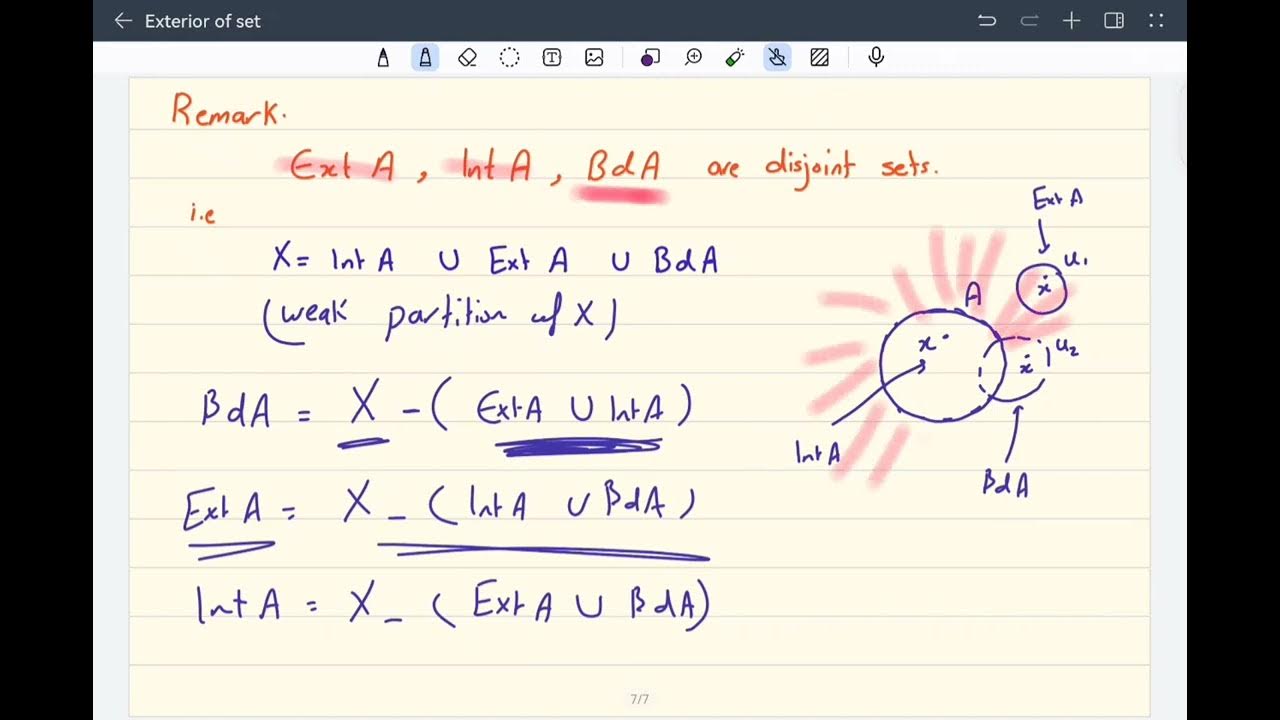 Exterior of set
Remark.
Ext A, Int A, Bd A are disjoint sets.
i.e
X = Int A ∪ Ext A ∪ Bd A
(weak partition of X)
Bd A = X - (Ext A ∪ Int A)
Ext A = X - (Int A ∪ Bd A)
Int A = X - (Ext A ∪ Bd A)
Ext A
U₁
x
A
x
U₂
x
Int A
Bd A
7/7